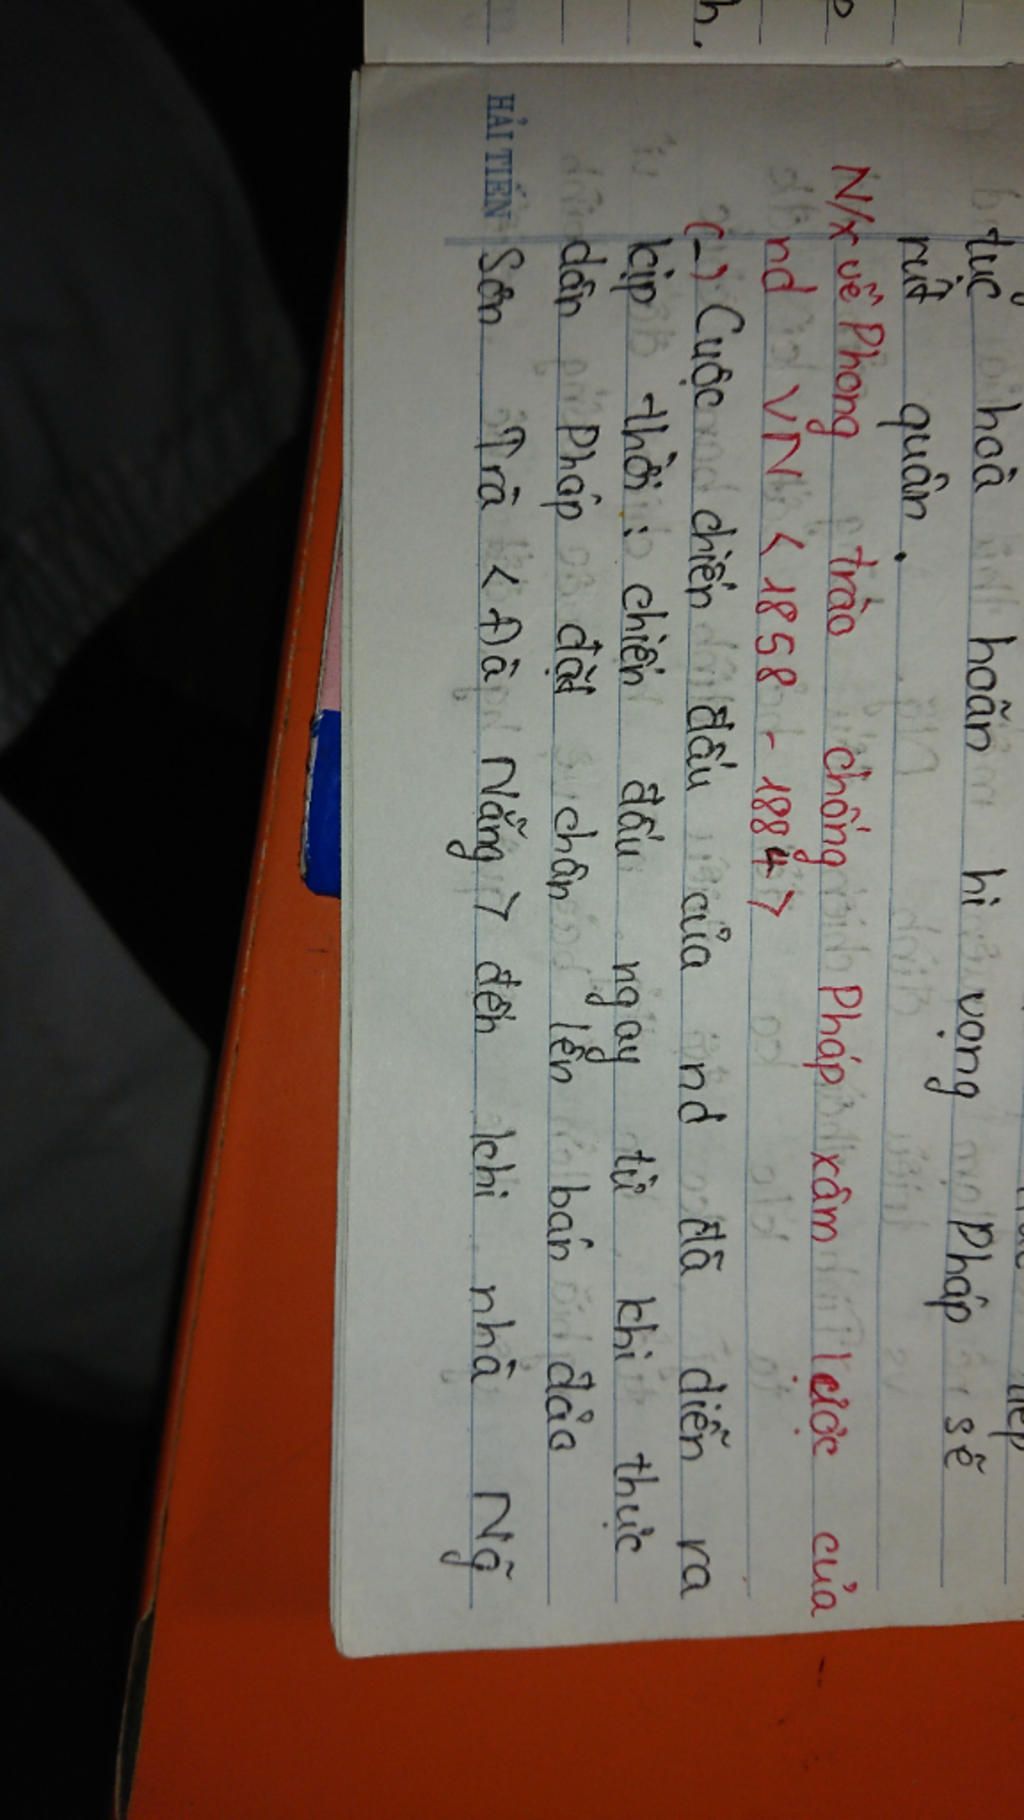 h.
tiếp
tục hoà hoãn hi vọng Pháp sẽ
rút quân.
N/x về Phong trào chống Pháp xâm lược của
nd VN < 1858 - 1884 >
(-) Cuộc chiến đấu của nd đã diễn ra
kịp thời : chiến đấu ngay từ khi thực
dân Pháp đặt chân lên bán đảo
Sơn Trà < Đà Nẵng > đến khi nhà Ng
HẢI TIẾN